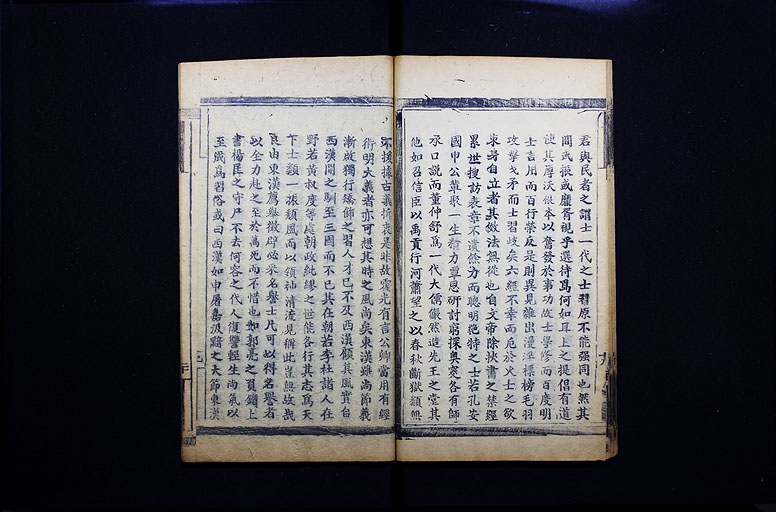 君與民者之謂士一代之士習原不能强同也然其
間或振或靡胥視乎選待爲何如耳上之提倡有道
使其厚沃根本以奮發於事功故士學修而百度明
士言用而百行榮反是則異見雜出漫準標榜毛羽
攻擊戈矛而士習歧矣六經不幸而厄於火士之欲
束身自立者其倣法無從也自文帝除挾書之禁經
累世搜訪表章不遺餘力而聰明絶特之士若孔安
國申公輩聚一生精力覃思研討窮探奥窔各有師
承口説而董仲舒爲一代大儒儼然造先王之堂其
他如召信臣以禹貢行河蕭望之以春秋斷獄類無
不援據古義折衷是非故霍光有言公卿當用有經
術明大義者亦可想其時之風尚矣東漢雖尚節義
漸啟獨行矯飾之習人才已不及西漢顧其風實自
西漢開之馴至三國而不已其在朝若李杜諸人在
野若黄叔度等處朝政紕繆之世能各行其志爲天
下士類一振頽風而以領袖清流見稱此豈無故哉
良由東漢薦舉徵辟必采名譽士片可以得名譽者
必全力赴之至於萬死而不惜也如郭亮之負鑕上
書楊匡之守尸不去何容之代人復讐輕生尚氣以
至戕爲習俗或曰西漢如申屠嘉汲黯之大節東漢